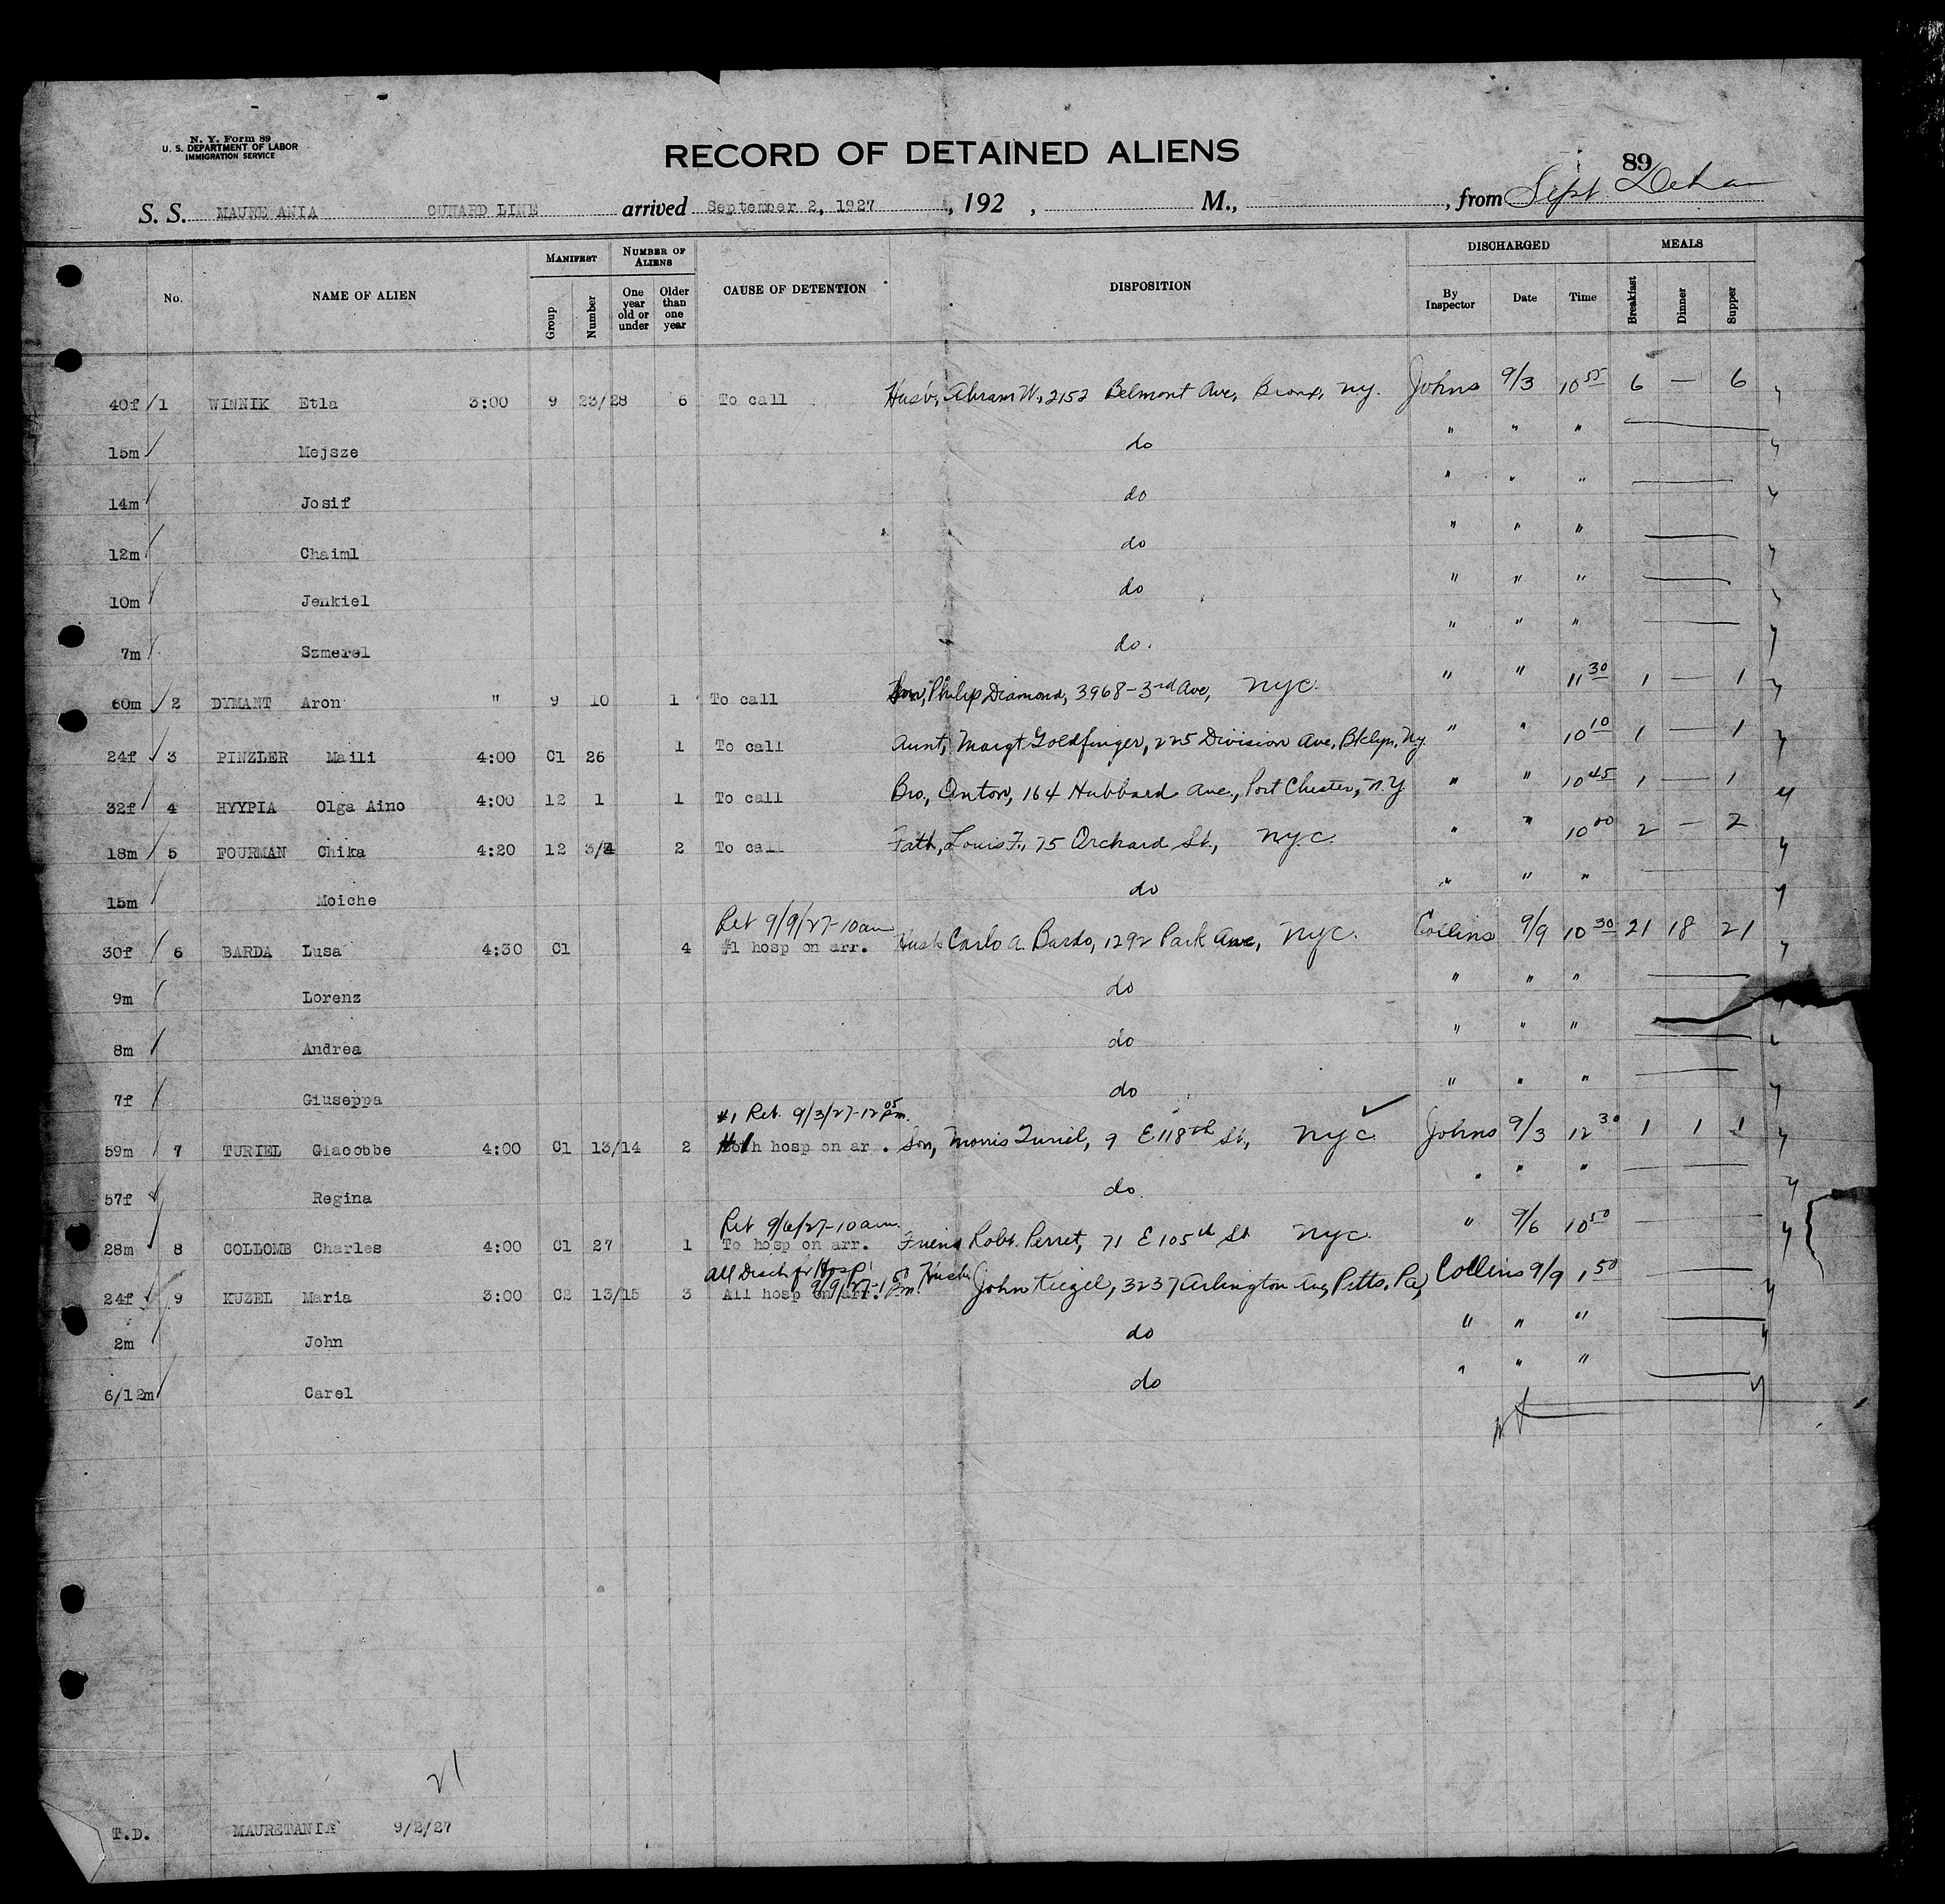 N. Y. Form 89
U. S. DEPARTMENT OF LABOR
IMMIGRATION SERVICE
RECORD OF DETAINED ALIENS
89
S. S. MAURE ANIA CUNARD LINE arrived September 2, 1927, 192 , M., , from Sept.
No. NAME OF ALIEN MANIFEST Group Number NUMBER OF ALIENS One year old or under Older than one year CAUSE OF DETENTION DISPOSITION DISCHARGED By Inspector Date Time MEALS Breakfast Dinner Supper
40f 1 WINNIK Etla 3:00 9 23/28 6 To call Husb, Abram W., 2152 Belmont Ave, Bronx, N.Y. Johns 9/3 10 55 6 — 6
15m Mejsze do " " "
14m Josif do " " "
12m Chaiml do " " "
10m Jenkiel do " " "
7m Szmerel do. " " "
60m 2 DYMANT Aron " 9 10 1 To call Son, Philip Diamond, 3968-3rd Ave, NYC. " " 11 30 1 — 1
24f 3 PINZLER Maili 4:00 C1 26 1 To call Aunt, Margt Goldfinger, 225 Division Ave, Bklyn, Ny. " " 10 10 1 — 1
32f 4 HYYPIA Olga Aino 4:00 12 1 1 To call Bro, Anton, 164 Hubbard Ave., Port Chester, N.Y " " 10 45 1 — 1
18m 5 FOURMAN Chika 4:20 12 3/4 2 To call Fath, Louis F., 75 Orchard St., NYC. " " 10 00 2 — 2
15m Moiche do " " "
Ret 9/9/27-10am
30f 6 BARDA Lusa 4:30 C1 4 #1 hosp on arr. Husb Carlo A Bardo, 1292 Park Ave, NYC. Collins 9/9 10 30 21 18 21
9m Lorenz do " " "
8m Andrea do " " "
7f Giuseppa do " " "
#1 Ret. 9/3/27-12 05 pm.
59m 7 TURIEL Giacobbe 4:00 C1 13/14 2 #1 hosp on ar . Son, Morris Turiel, 9 E 118th St, NYC Johns 9/3 12 30 1 1 1
57f Regina do. " " "
Ret 9/6/27-10am.
28m 8 COLLOMB Charles 4:00 C1 27 1 To hosp on arr. Friend Robt. Perret, 71 E 105th St NYC. " 9/6 10 50
All Disch fr Hosp
9/9/27-1 50 Pm.
24f 9 KUZEL Maria 3:00 C2 13/15 3 All hosp on arr. Husb John Kuzel, 3237 Arlington Av, Pitts, Pa, Collins 9/9 1 50
2m John do " " "
6/12m Carel do " " "
21
T.D. MAURETANIA 9/2/27